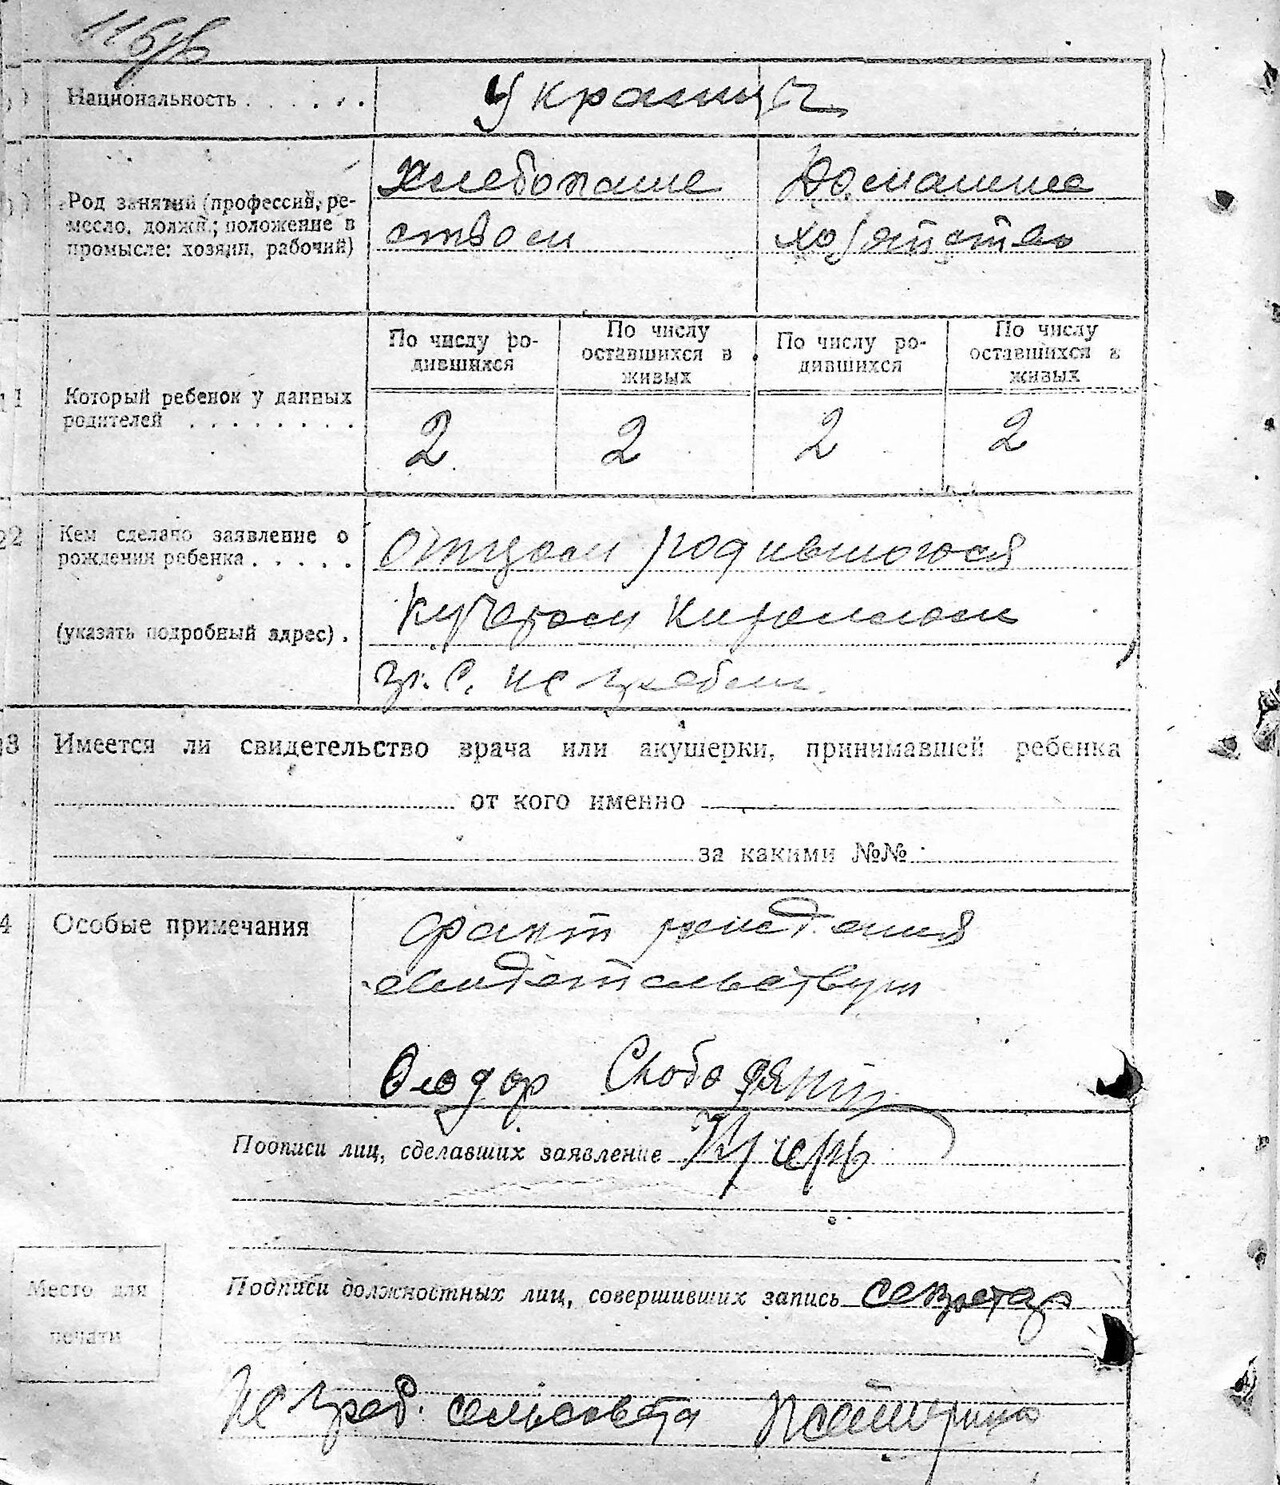 Национальность . . . . . .
Украинц
Род занятий (профессий, ре-
месло, должн.; положение в
промысле: хозяин, рабочий)
Хлебопаше
ством
Домашнее
хозяйство
По числу ро-
дившихся
По числу
оставшихся в
живых
По числу ро-
дившихся
По числу
оставшихся в
живых
11 Который ребенок у данных
родителей . . . . . . . .
2 2 2 2
22 Кем сделано заявление о
рождении ребенка . . . . .
(указать подробный адрес) .
Отцом родившогося
Кучером
гр. С.
Имеется ли свидетельство врача или акушерки, принимавшей ребенка
от кого именно
за какими №№
4 Особые примечания
Факт рождения
свидетельствует
Слободяник
Подписи лиц, сделавших заявление Кучерь
Место для
печати
Подписи должностных лиц, совершивших запись секретар
сельсовета